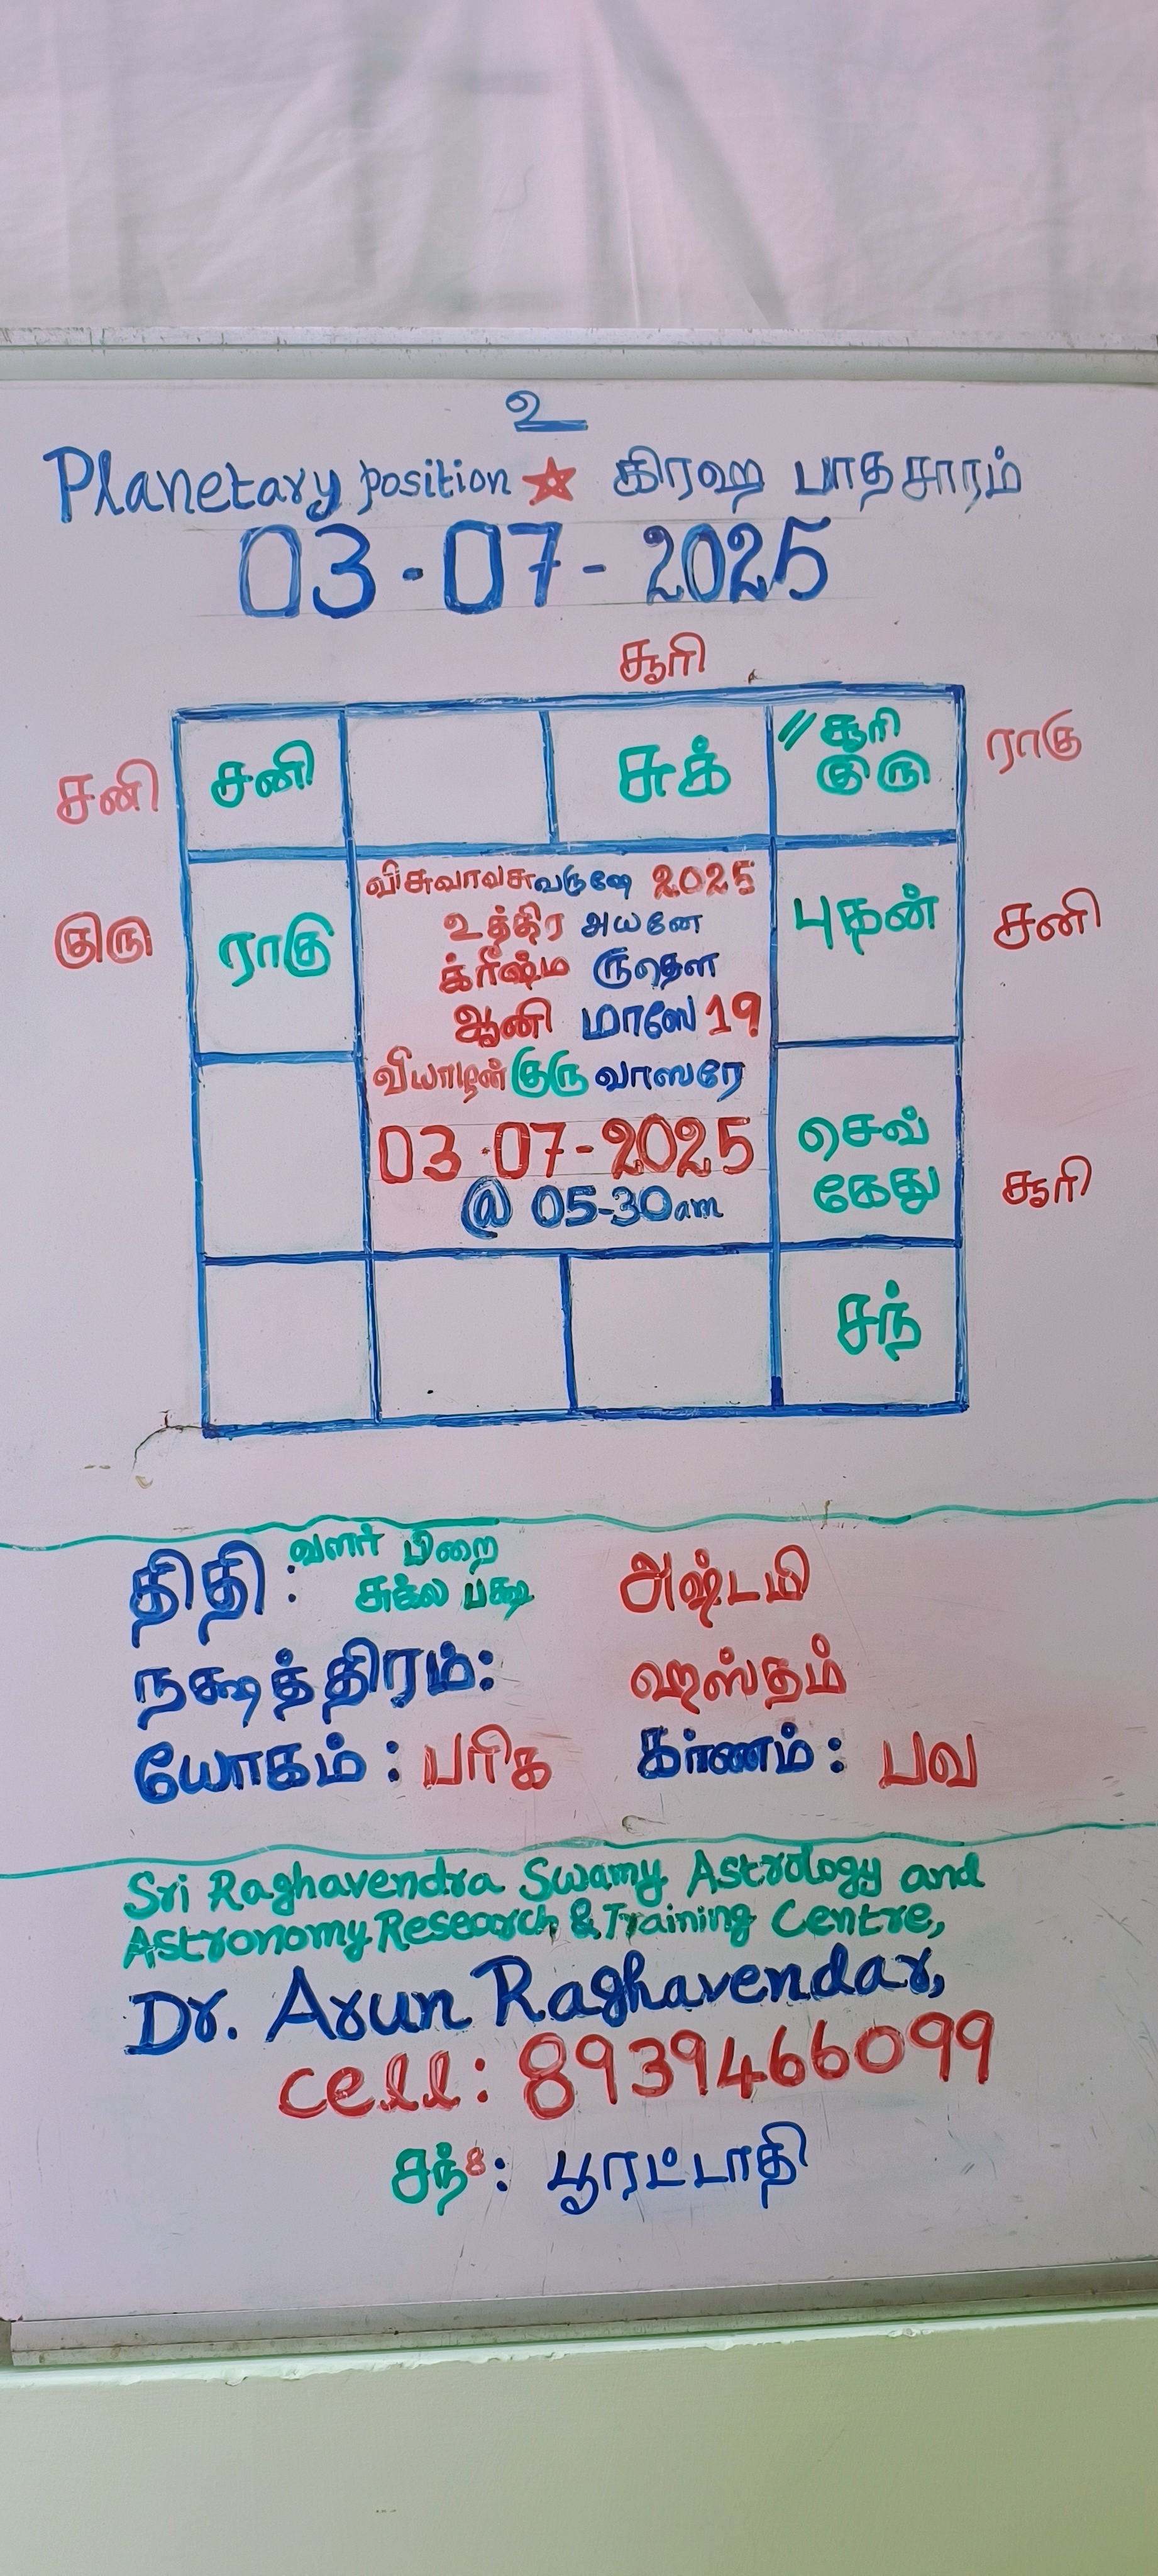 உ
Planetary position ★ கிரஹ பாதசாரம்
03-07-2025
சூரி
சனி சனி சுக் // சூரி ராகு
குரு
விசுவாவசுவருஷே 2025
குரு ராகு உத்திர அயனே புதன் சனி
க்ரீஷ்ம ருதௌ
ஆனி மாஸே 19
வியாழன் குரு வாஸரே
03-07-2025 செவ்
@ 05-30am கேது சூரி
சந்
திதி: வளர் பிறை அஷ்டமி
சுக்ல பக்ஷ
நக்ஷத்திரம்: ஹஸ்தம்
யோகம்: பரிக கர்ணம்: பவ
Sri Raghavendra Swamy Astrology and
Astronomy Research & Training Centre,
Dr. Arun Raghavendar,
cell: 8939466099
சந்8: பூரட்டாதி